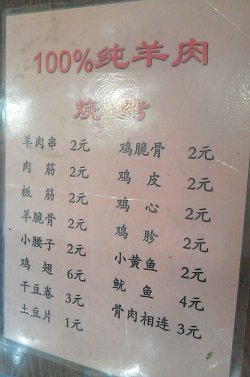 100%纯羊肉
烧烤
羊肉串 2元
肉筋 2元
板筋 2元
羊脆骨 2元
小腰子 2元
鸡翅 6元
干豆卷 3元
土豆片 1元
鸡脆骨 2元
鸡皮 2元
鸡心 2元
鸡胗 2元
小黄鱼 2元
鱿鱼 4元
骨肉相连 3元